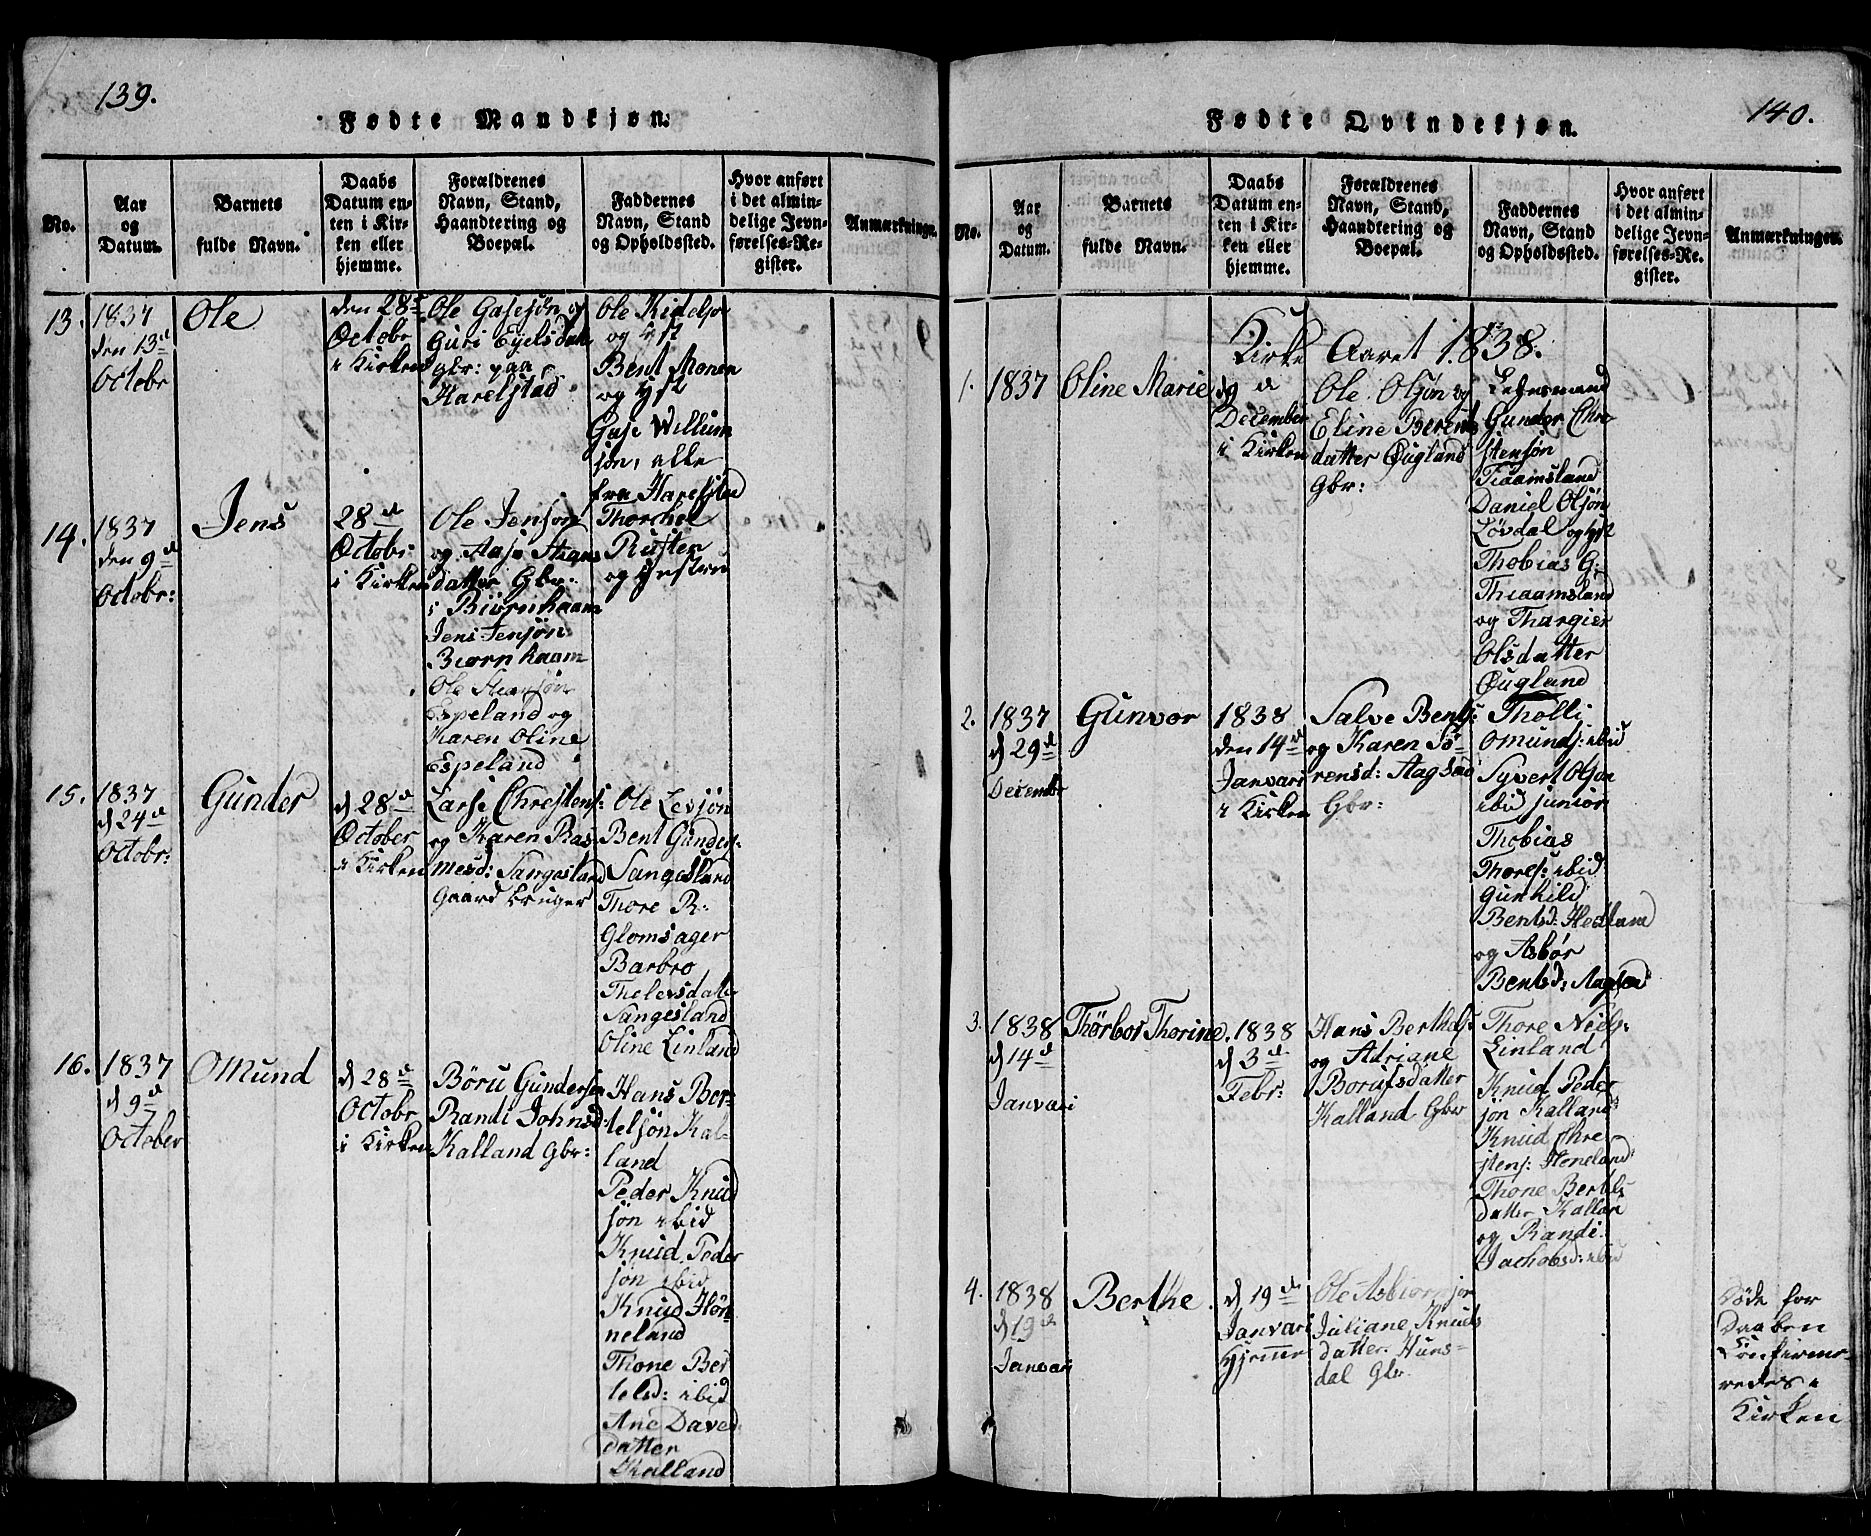 139.
Fødte Mandkjøn.
No.
Aar
og
Datum.
Barnets
fulde Navn.
Daabs
Datum en-
ten i Kir-
ken eller
hjemme.
Forældrenes
Navn, Stand,
Haandtering og
Boepæl.
Faddernes
Navn, Stand
og Opholdssted.
Hvor anført
i det almin-
delige Jevn-
førelses-Re-
gister.
Anmærkninger.
13.
1837
den 13d
Octobr
Ole
den 28d
Octobr
i Kirken
Ole Gasesøn og
Guri Eyelsdatt
gbr: paa
Harelstad
Ole Kidelsø
og
Bent Monen
og yst
Gase Willum
søn, alle
fra Harelstad
14.
1837
den 9d
Octobr:
Jens
28d
Octobr
i Kirken
Ole Jensøn
og Aase Stians
datter Gbr:
i Biørnhaam
Jens Jensøn
Biørnhaam
Ole Stiansøn
Espeland og
Karen Oline
Espeland
Thorchel
Rusten
og
15.
1837
d 24d
Octobr:
Gunder
d 28d
October
i Kirken
Larse Chrestens:
og Karen Ras
mesd: Sangesland
Gaard bruger
Ole Levsøn
Bent Gunders:
Sangesland
Thore R:
Glomsager
Barbro
Thelevsdatte
Sangesland
Oline Linland
16.
1837
d 9d
October
Omund
d 28d
Octobr
i Kirken
Børu Gundersen
Randi Johnsd
Kalland Gbr:
Hans Ber-
telsøn Kal-
land
Peder Knud
søn ibid
Knud Peder
søn ibid
Knud Høn-
neland
Thone Ber
telsd: ibid
Ane Daved
datter
Kalland
140.
Fødte Qvindekjøn.
No.
Aar
og
Datum.
Barnets
fulde Navn.
Daabs
Datum en-
ten i Kir-
ken eller
hjemme.
Forældrenes
Navn, Stand,
Haandtering og
Boepæl.
Faddernes
Navn, Stand
og Opholdssted.
Hvor anført
i det almin-
delige Jevn-
førelses-Re-
gister.
Anmærkninger.
Kirke Aaret 1838.
1.
1837
Oline Marie
19d
December
i Kirken
Ole Olsøn og
Eline Berents
datter Øugland
Gbr:
Lehnsmand
Gunder Chre
stensøn
Tiaamsland
Daniel Olsøn
Løvdal og yst
Thobias G:
Thiaamsland
og Thargier
Olsdatter
Øugland
2.
1837
d 29d
Decembr
Gunvor
1838
den 14d
Janvari
i Kirken
Salve Bents:
og Karen Sø-
rensd: Aagsed
Gbr:
Tholli
Omunds: ibid
Syvert Olsøn
ibid junior
Thobias
Thores: ibid
Gunhild
Bentsd: Hedlam
og Asbør
Bentsd: Aagsed
3.
1838
d 14d
Janvari
Thørbor Thorine.
1838
d 3d
Febr:
Hans Berthels:
og Adriane
Borufsdatter
Kalland Gbr
Thore Niels:
Linland
Knud Peder
søn Kalland
Knud Chre
stens: Høneland
Thone Bertels
datter Kalland
og Randi
Jachobsd: ibid
4.
1838
d 19d
Janvari
Berthe.
d 19d
Janvari
hjeme
Ole Asbiørnsøn
Juliane Knuds
datter Huns-
dal Gbr
Døde for
Daaben
Confirme-
redes i
Kirken